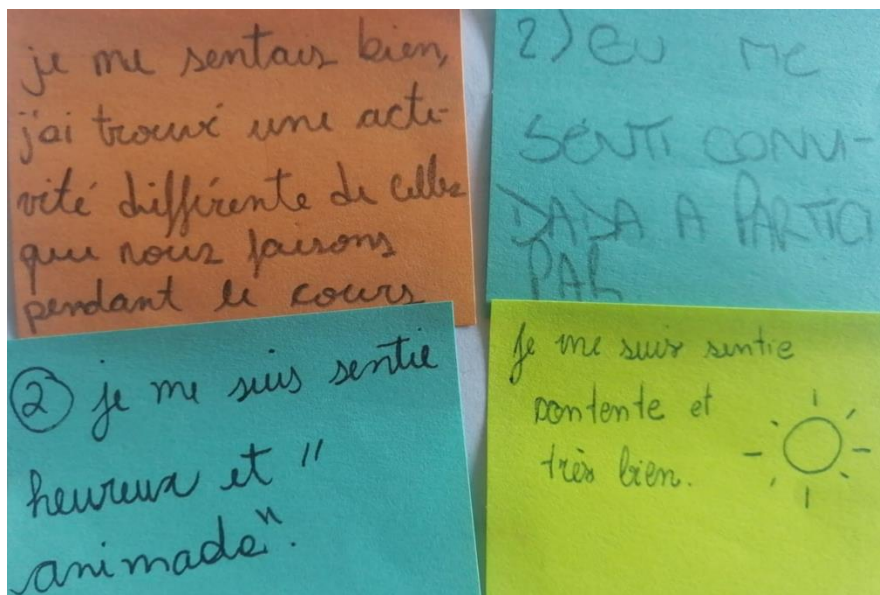 je me sentais bien,
j'ai trouvé une acti-
vité différente de celles
que nous faisons
pendant le cours
2) EU ME
SENTI CONVI-
DADA A PARTICI
PAR
② je me suis sentie
heureux et "
animada".
Je me suis sentie
contente et
très bien.